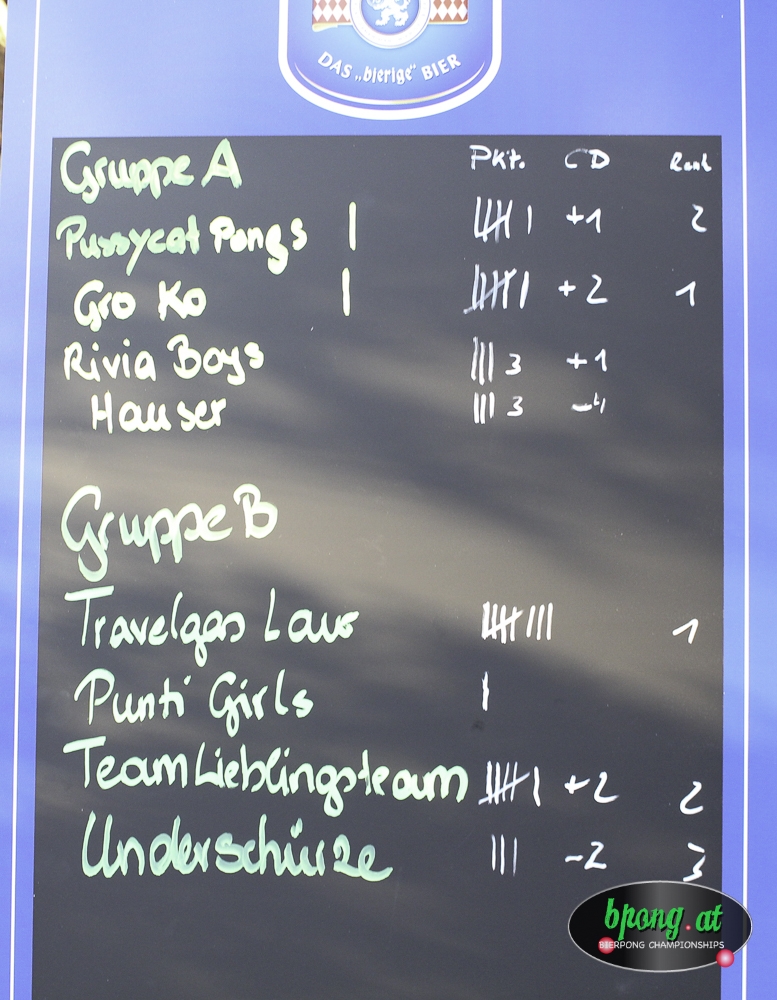 DAS „bierige" BIER
Gruppe A Pkt. CD Rank
Pussycat Pongs | |||| | +1 2
Gro Ko | |||| | +2 1
Rivia Boys ||| 3 +1
Hauser ||| 3 -4
Gruppe B
Travelgas Laus |||| ||| 1
Punti Girls |
Team Lieblingsteam |||| | +2 2
Underschürze ||| -2 3
bpong.at
BIERPONG CHAMPIONSHIPS